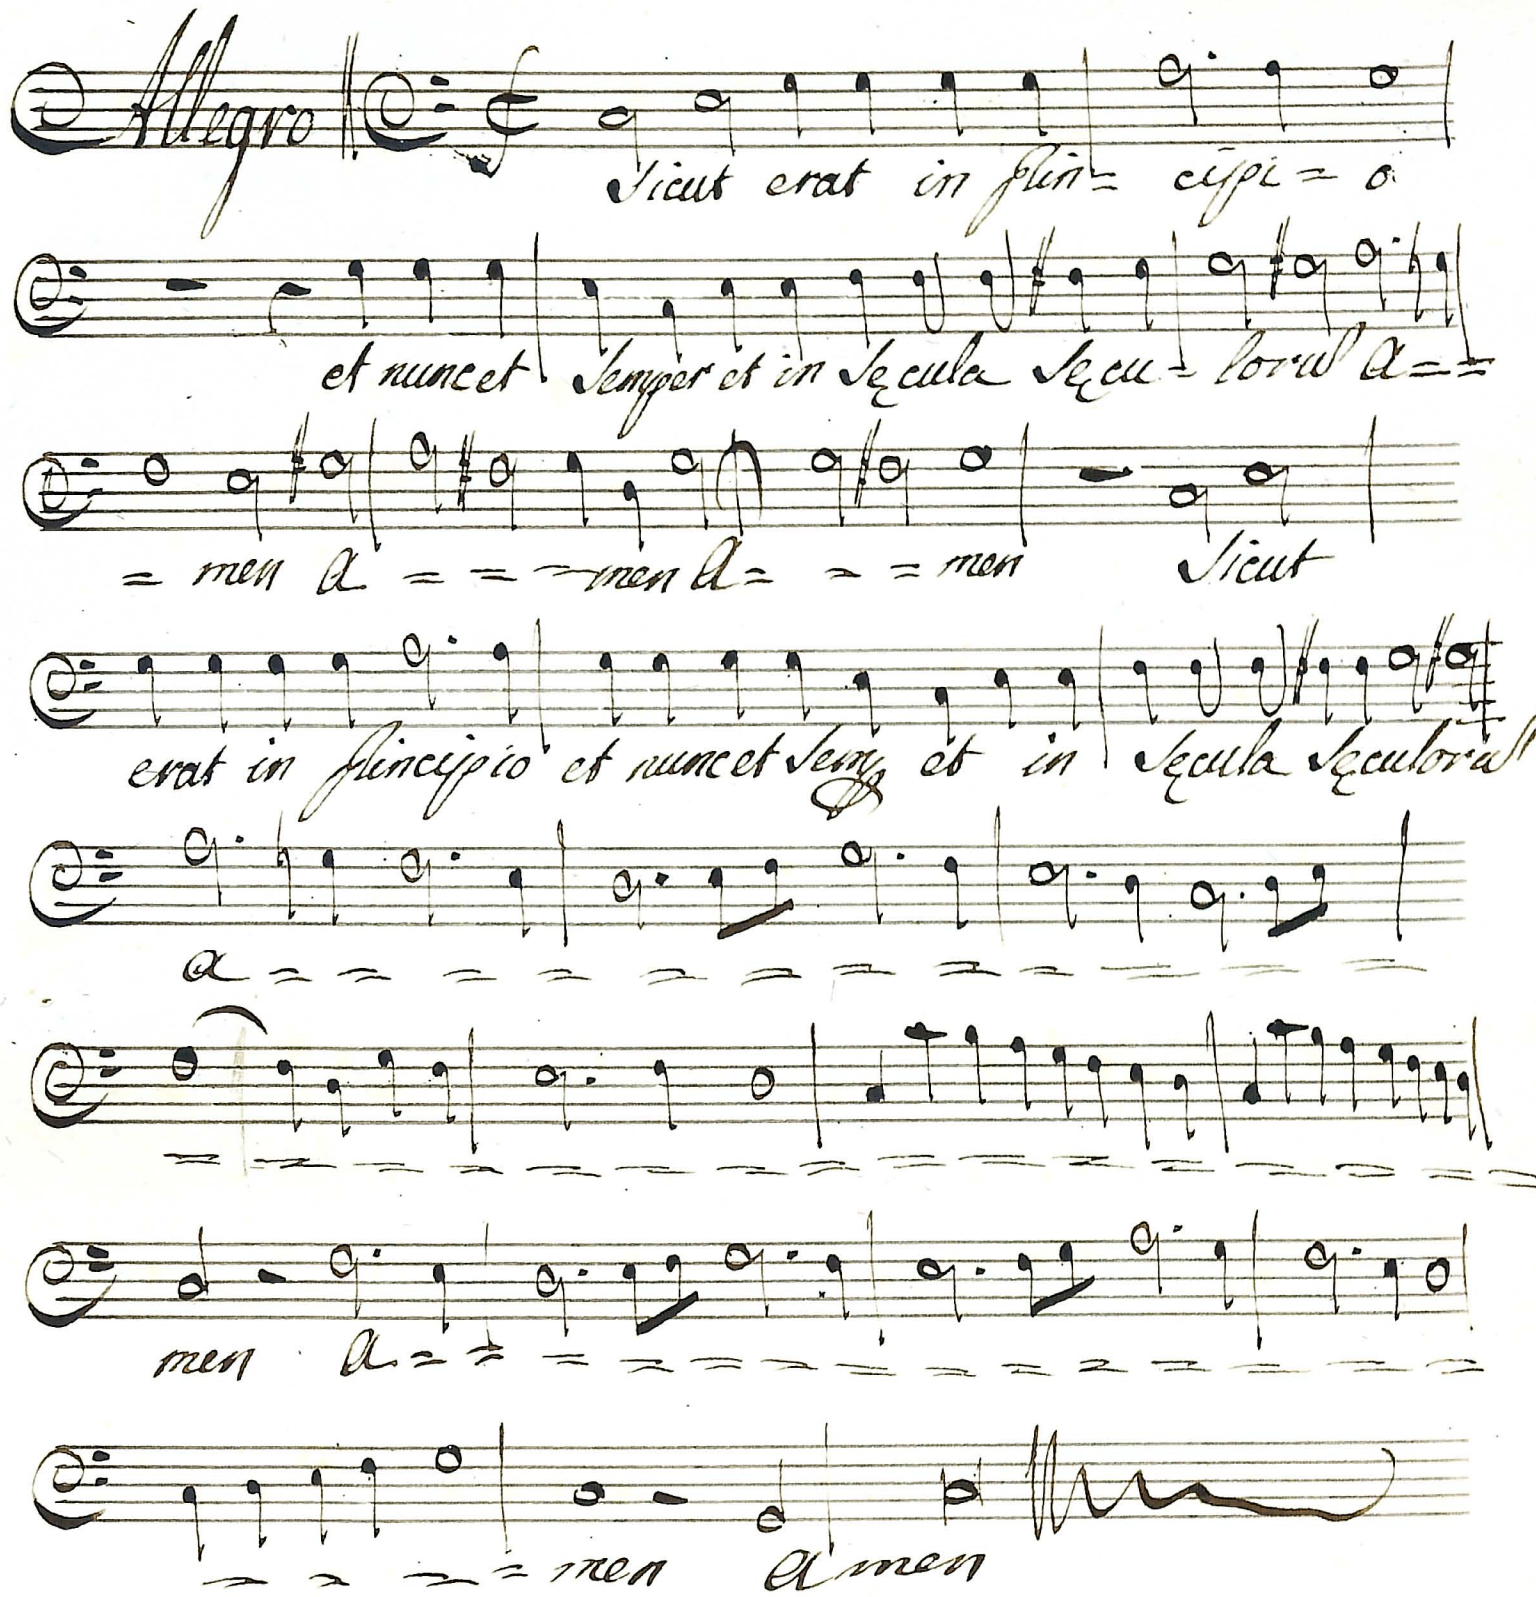 Allegro
Sicut erat in prin= cipi = o
et nunc et Semper et in Sęcula Sęcu = lorum A = =
= men A = = = men A = = = men Sicut
erat in principio et nunc et Semp et in Sęcula Sęculorum
a = = = = = = = = = = = =
= = = = = = = = = = = = = = = = =
men A = = = = = = = = = = = = = = =
= = = = men Amen